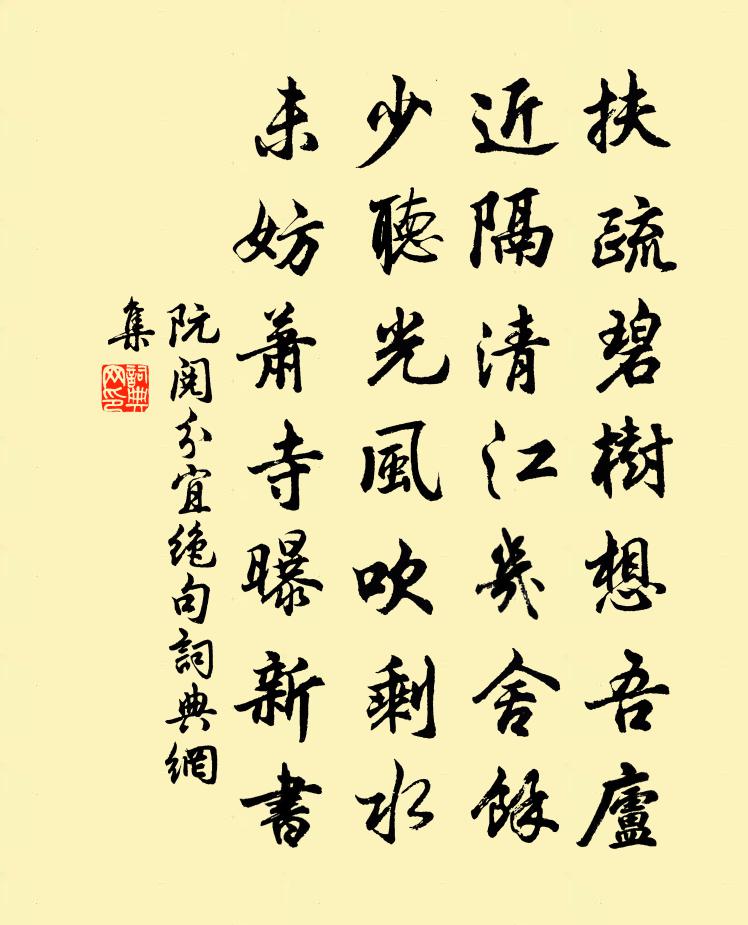 扶疏碧樹想吾廬
近隔清江幾舍餘
少聽光風吹剩水
未妨蕭寺曝新書
阮閱分宜絕句詞典網
集
詞典
网印